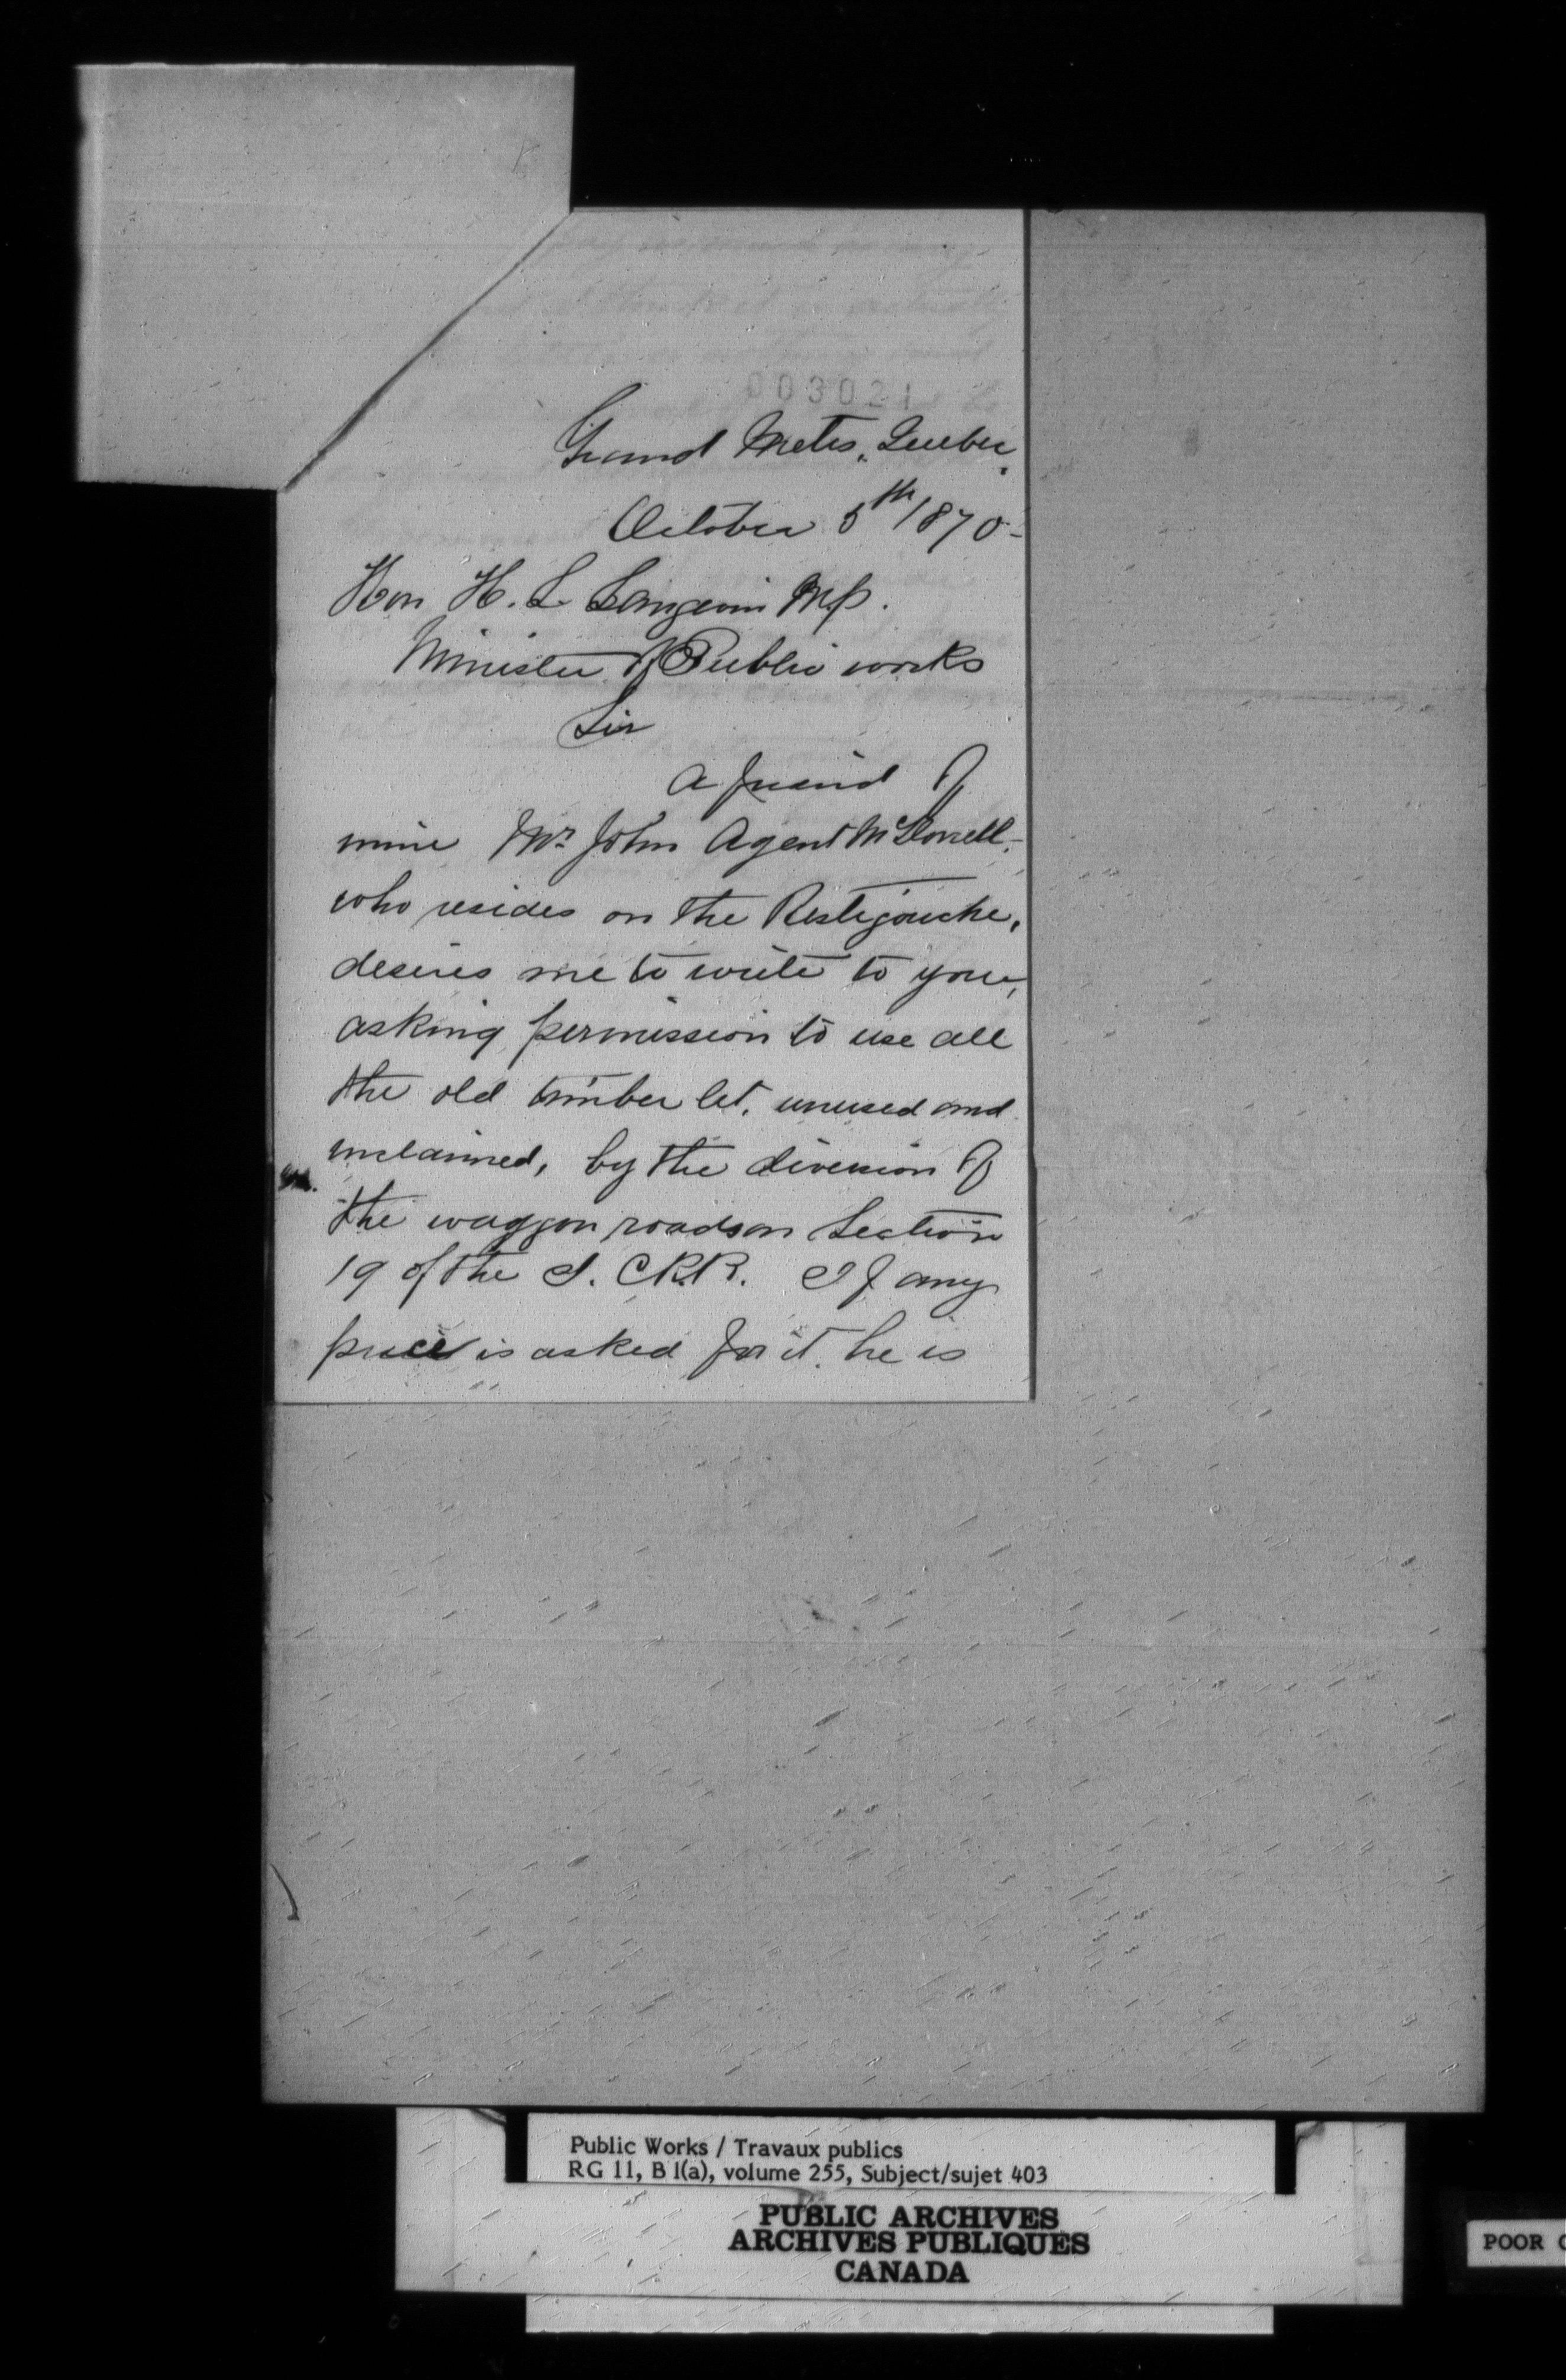 003021
Grand Metis, Quebec.
October 5th 1870-
Hon H. L Langevin M.P.
Minister of Public works
Sir
A friend of
mine Mr John Agent McDonell,
who resides on the Restigouche,
desires me to write to you,
asking permission to use all
the old timber let, unused and
unclaimed, by the division of
the waggon roads on Section
19 of the I. C R.R. If any
price is asked for it, he is
Public Works / Travaux publics
RG 11, B 1(a), volume 255, Subject/sujet 403
PUBLIC ARCHIVES
ARCHIVES PUBLIQUES
CANADA
POOR